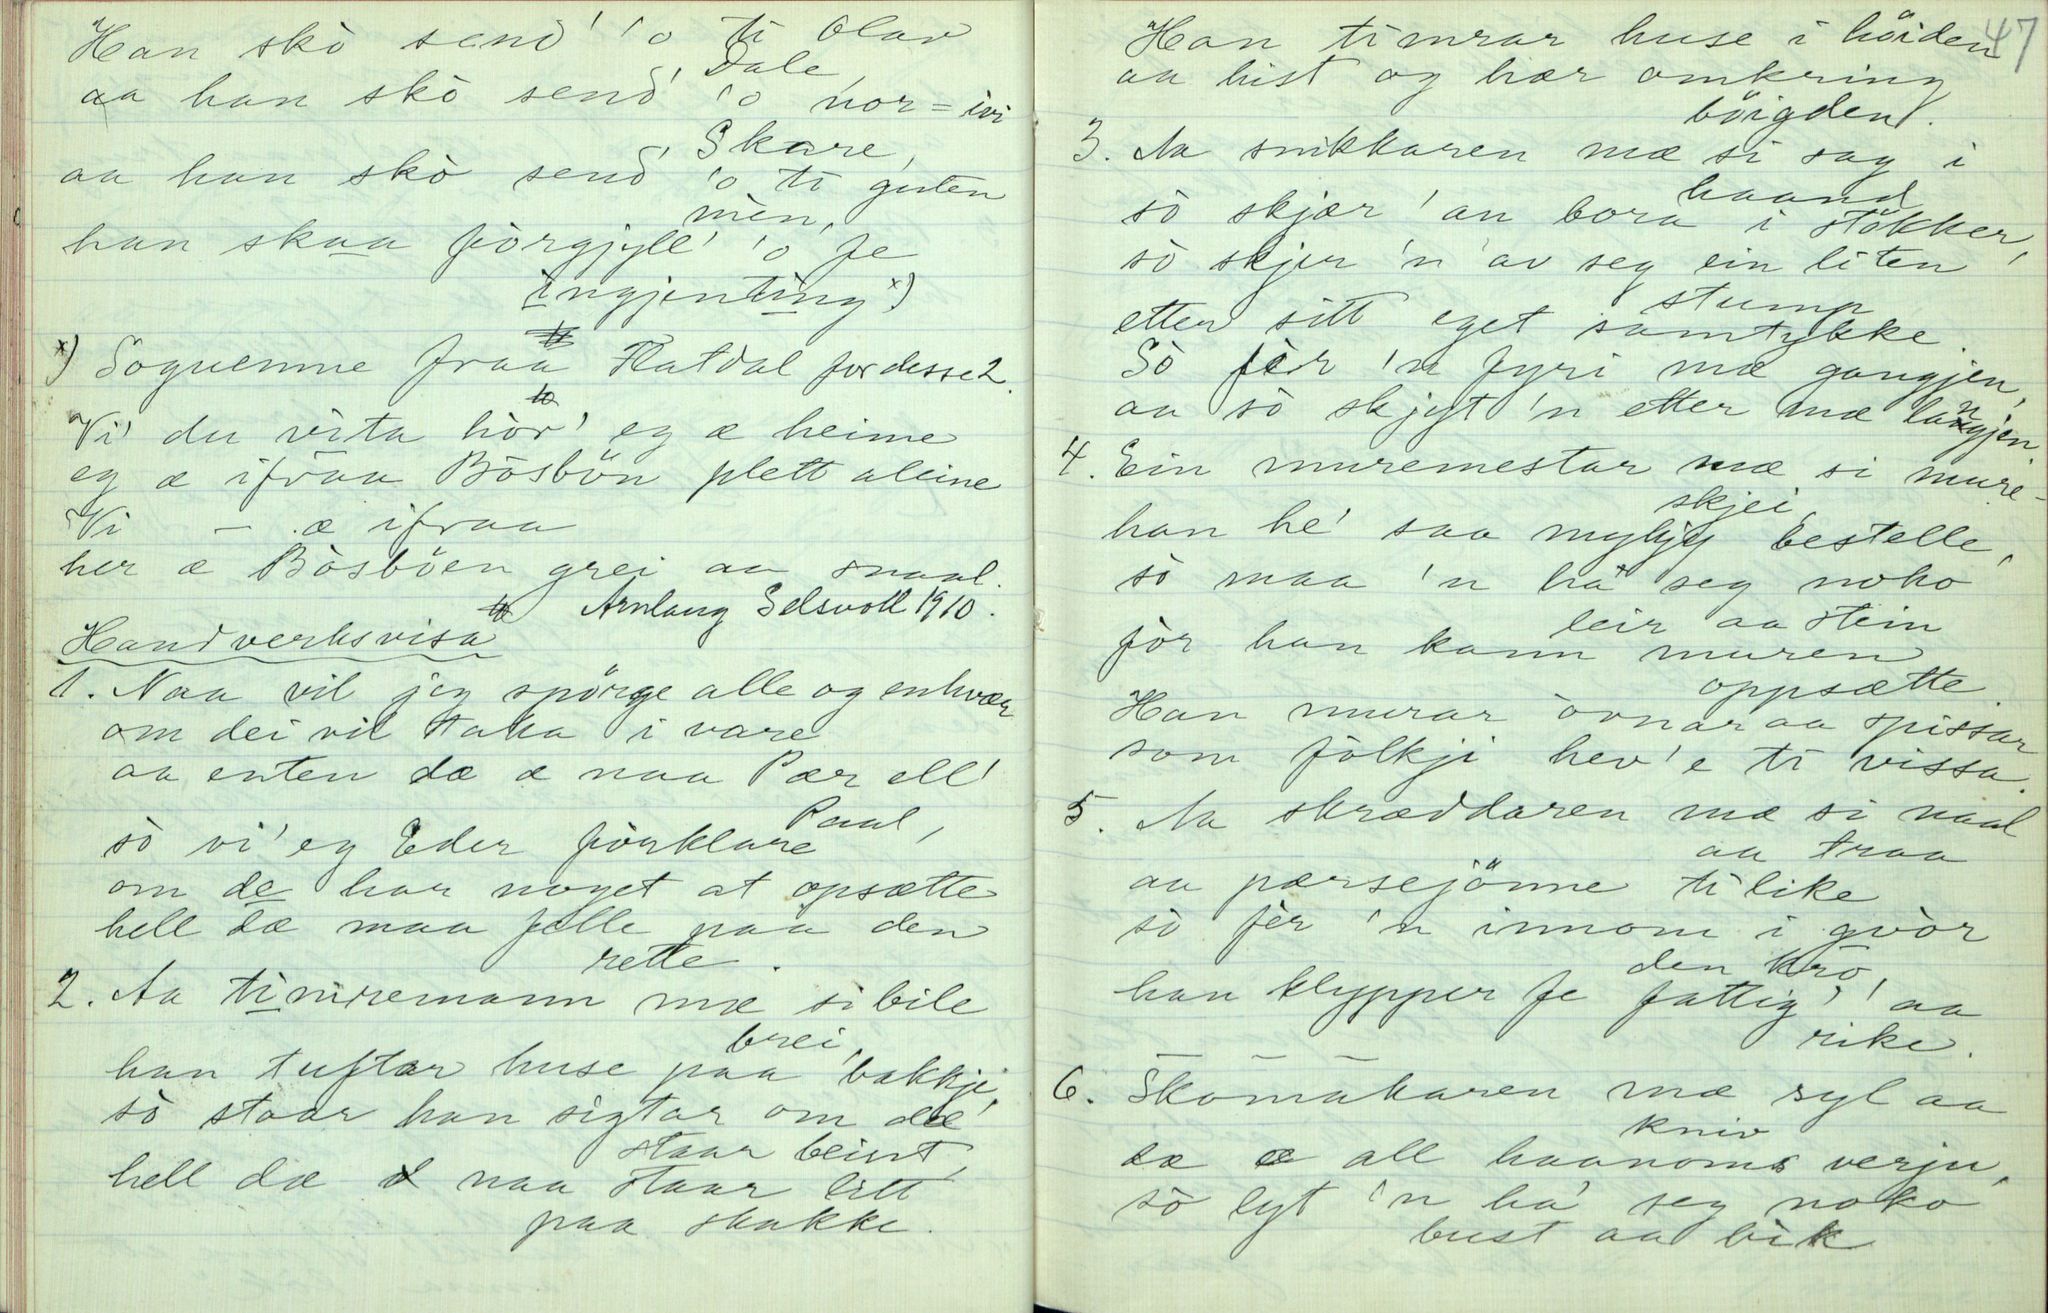 Han skò send' 'o ti Olav
Dale,
aa han skò send' 'o nor-ivi
Skare,
aa han skò send' 'o ti guten
min,
han skaa fòrgjyll' 'o fe
ingjenting x)
x) Soguemne fraa Flatdal for desse 2.
Vi' du vita hòr' eg æ heime
eg æ ifraa Bòsbön plett aleine
Vi — æ ifraa
her æ Bòsböen grei aa snaal.
Arnlaug Selsvoll 1910.
Handverksvisa
1. Naa vil jeg spörge alle og enhvær
om dei vil taka i vare
aa enten dæ æ naa Pær ell'
Paal,
sò vi' eg Eder fòrklare
om de har noget at opsætte
hell dæ maa felle paa den
rette.
2. Aa timremann mæ si bile
brei,
han tuftar huse paa bakkje,
sò staar han sigtar om dæ
staar beint,
hell dæ naa staar litt
paa skakke.
47
Han timrar huse i höiden
aa hist og hær omkring
böigden.
3. Aa snikkaren mæ si sag i
haand
sò skjær 'an bora i stökker,
sò skjer 'n av seg ein liten
stump
etter sitt eget samtykke.
Sò fèr 'n fyri mæ gangjen,
aa sò skjyt 'n etter mæ langjen
4. Ein muremestar mæ si mure-
skjei
han he' saa mykjy bestelle,
sò maa 'n ha' seg noko
leir aa stein
fòr han kann muren
oppsætte.
Han murar òvnar aa spissar
som fòlkji hev'e ti vissa.
5. Aa skræddaren mæ si naal
aa traa
aa pærsejönne tilike
sò fèr 'n innom i qvòr
den kro,
han klypper fe fattig' aa
rike.
6. Skomakaren mæ syl aa
kniv
dæ æ all haanoms verju,
sò lyt 'n ha' seg noko
bust aa bik